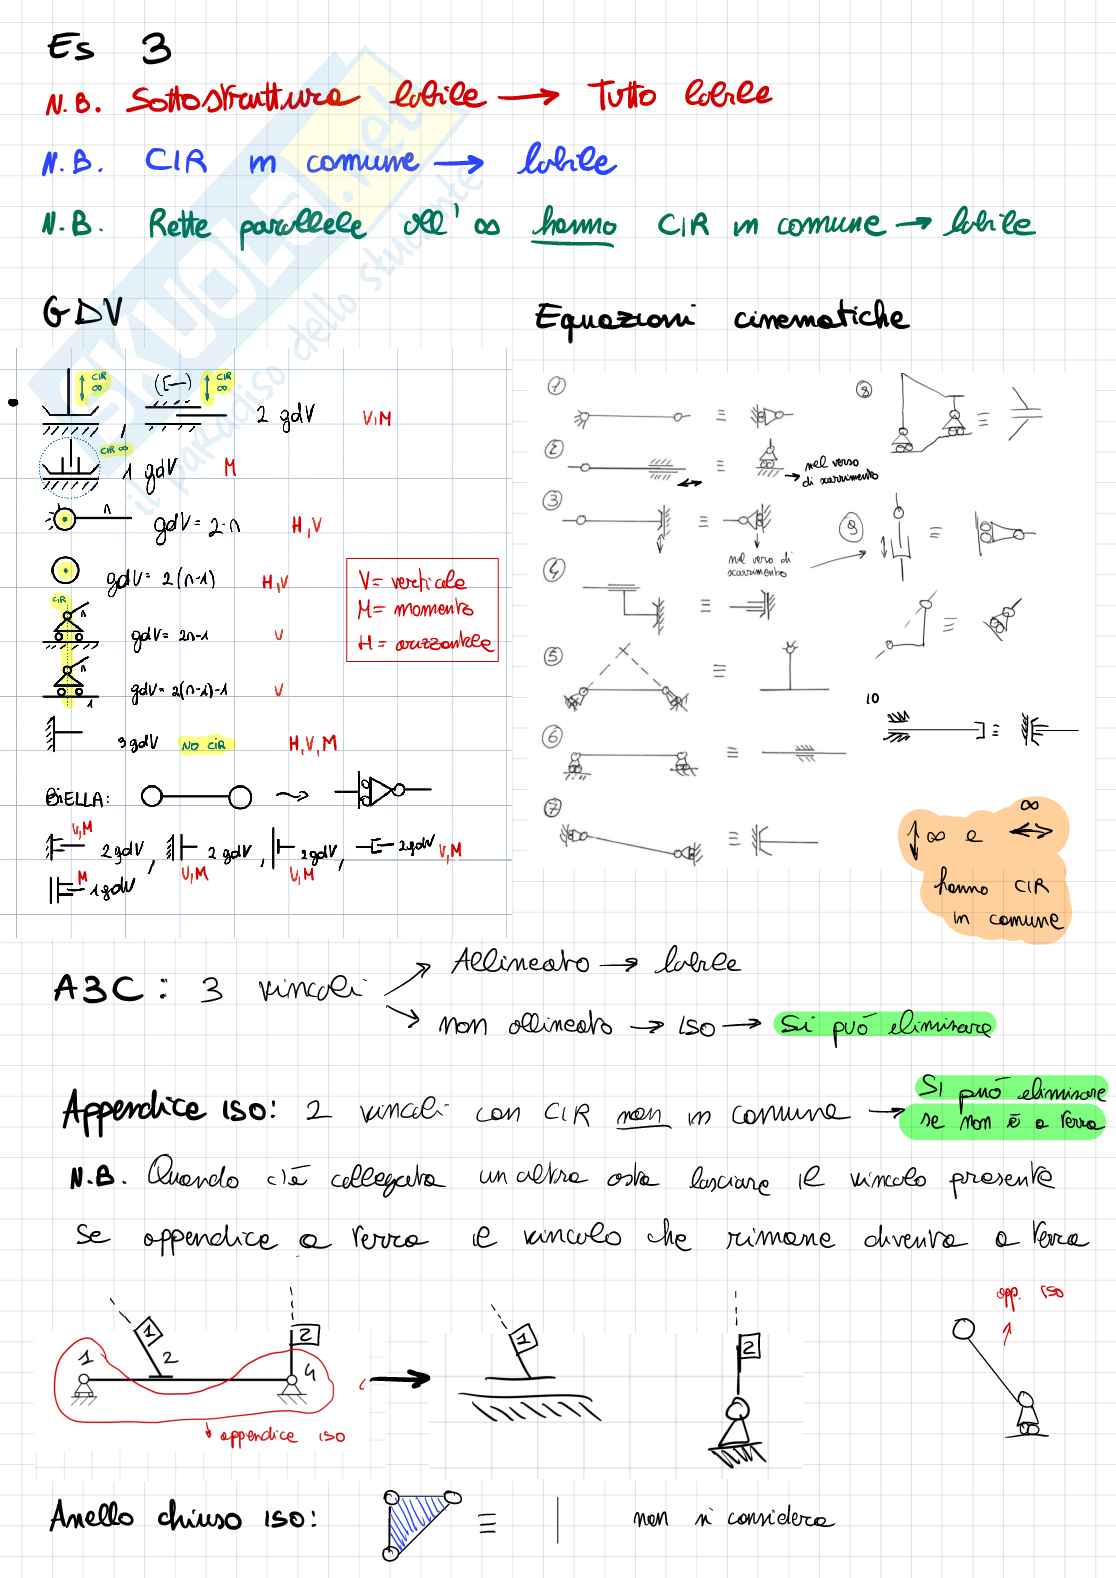 Es 3
N.B. Sottostruttura labile → Tutto labile
N.B. CIR in comune → labile
N.B. Rette parallele all'∞ hanno CIR in comune → labile
SKUOLA.net
il paradiso dello studente
GDV
CIR ∞
([—)
CIR ∞
2 gdV V,M
CIR ∞
1 gdV M
n
gdV = 2·n H,V
gdV = 2(n-1) H,V
CIR
n
gdV = 2n-1 V
n
1
gdV = 2(n-1)-1 V
3 gdV NO CIR H,V,M
V = verticale
M = momento
H = orizzontale
BIELLA:
V,M
2 gdV, 2 gdV, 2 gdV, 2 gdV V,M
V,M V,M
M
1 gdV
Equazioni cinematiche
1
2
nel verso
di scorrimento
3
nel verso di
scorrimento
4
5
6
7
8
9
10
↕ ∞ e ↔ ∞
hanno CIR
in comune
A3C: 3 vincoli
Allineato → labile
non allineato → ISO → Si può eliminare
Appendice ISO: 2 vincoli con CIR non in comune → Si può eliminare
se non è a terra
N.B. Quando c'è collegata un altra asta lasciare il vincolo presente
Se appendice a terra il vincolo che rimane diventa a terra
1
1
2
2
4
appendice ISO
1
2
app. ISO
Anello chiuso ISO: ≡ | non si considera